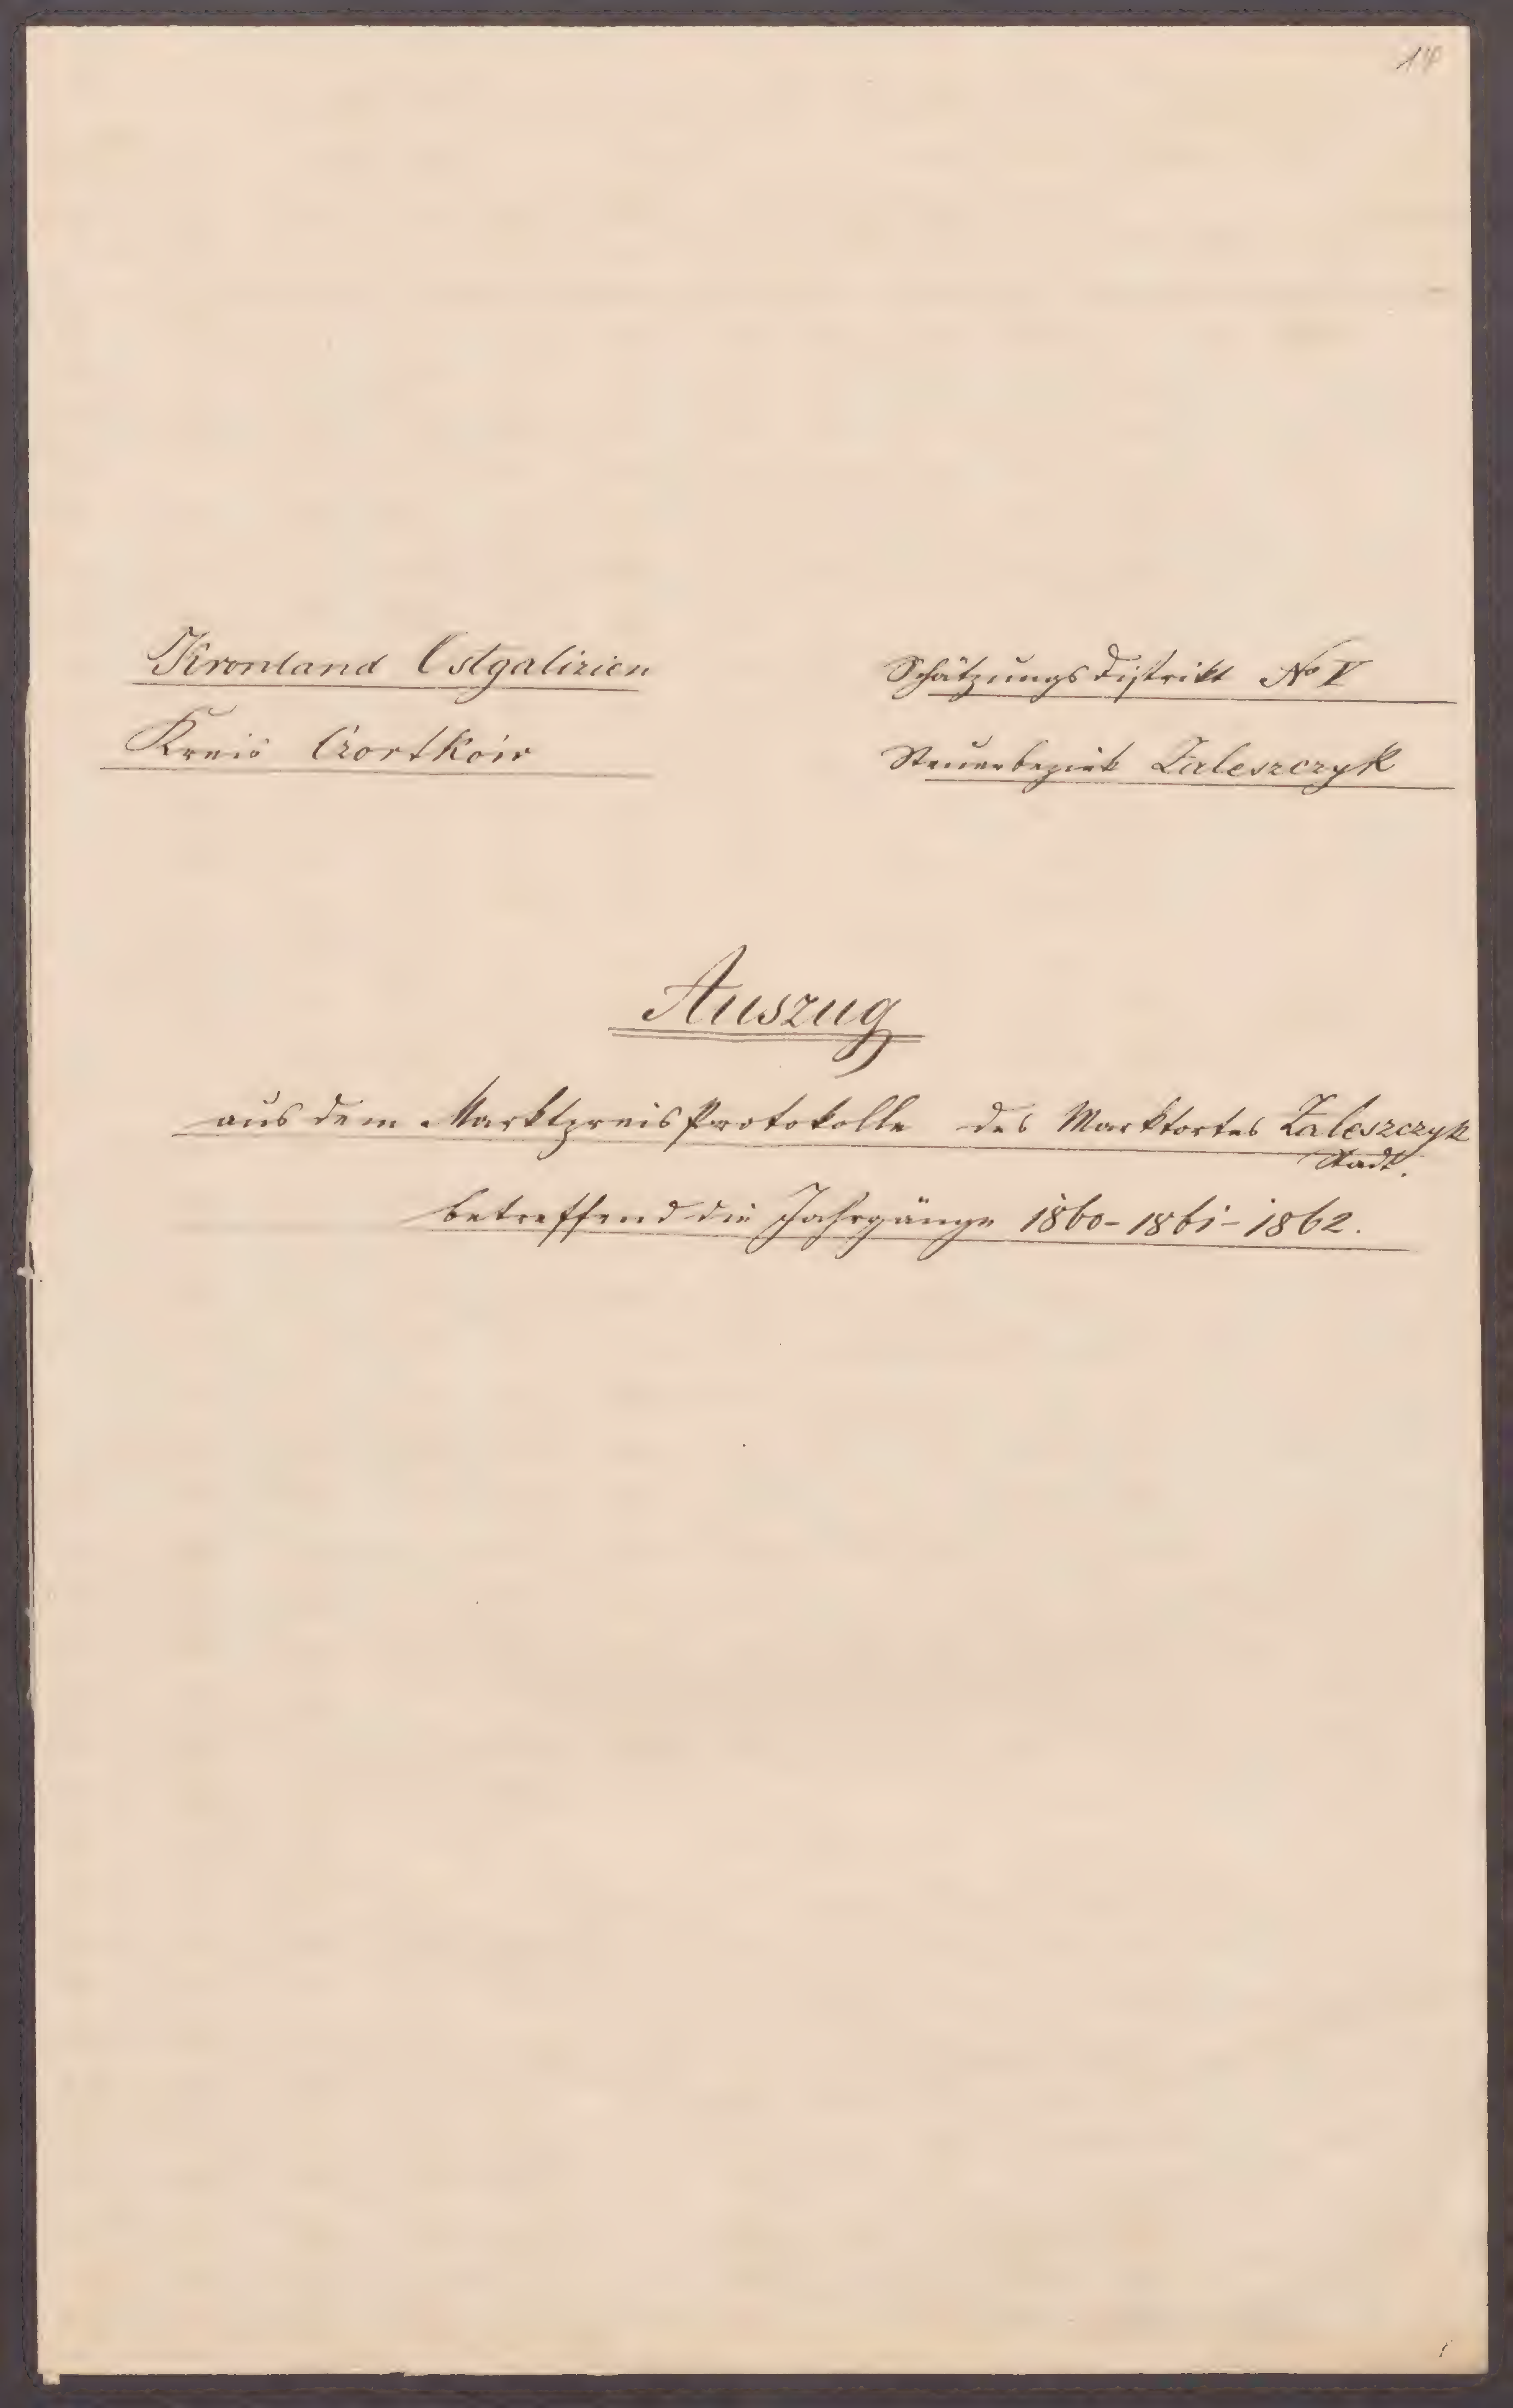 Kronland Ostgalizien
Schätzungs Distrikt No V
Kreis Czortków
Steuerbezirk Zaleszczyk
Auszug
aus dem Marktpreis Protokolle des Marktortes Zaleszczyk
Stadt.
betreffend die Jahrgänge 1860-1861-1862.